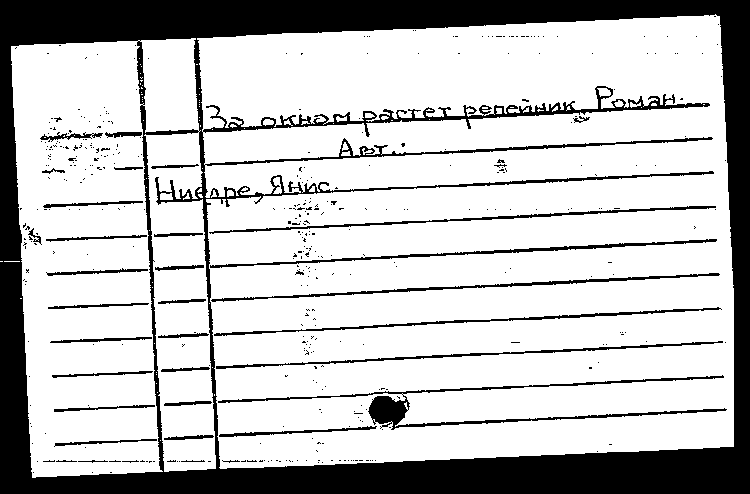 За окном растет репейник. Роман.
Авт.:
Ниедре, Янис.